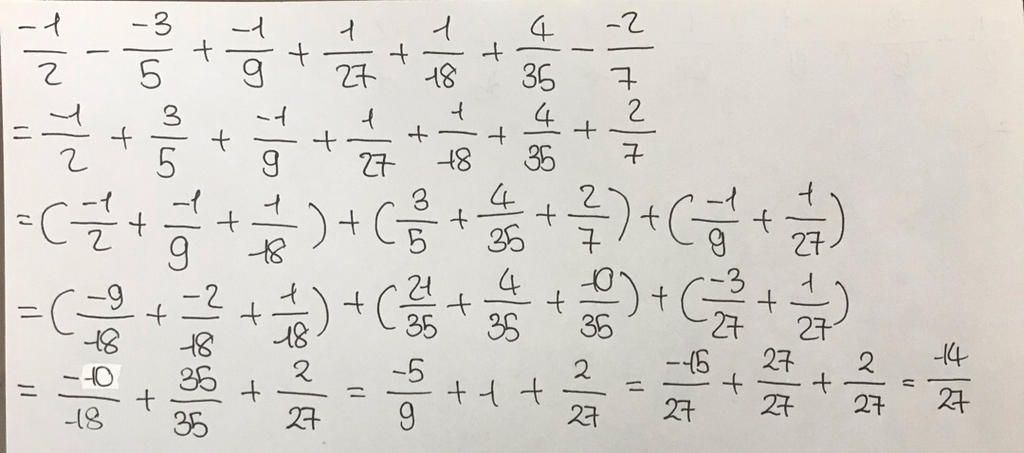 -1/2 - -3/5 + -1/9 + 1/27 + 1/18 + 4/35 - -2/7
= -1/2 + 3/5 + -1/9 + 1/27 + 1/18 + 4/35 + 2/7
= (-1/2 + -1/9 + 1/18) + (3/5 + 4/35 + 2/7) + (-1/9 + 1/27)
= (-9/18 + -2/18 + 1/18) + (21/35 + 4/35 + 10/35) + (-3/27 + 1/27)
= -10/18 + 35/35 + 2/27 = -5/9 + 1 + 2/27 = -15/27 + 27/27 + 2/27 = 14/27